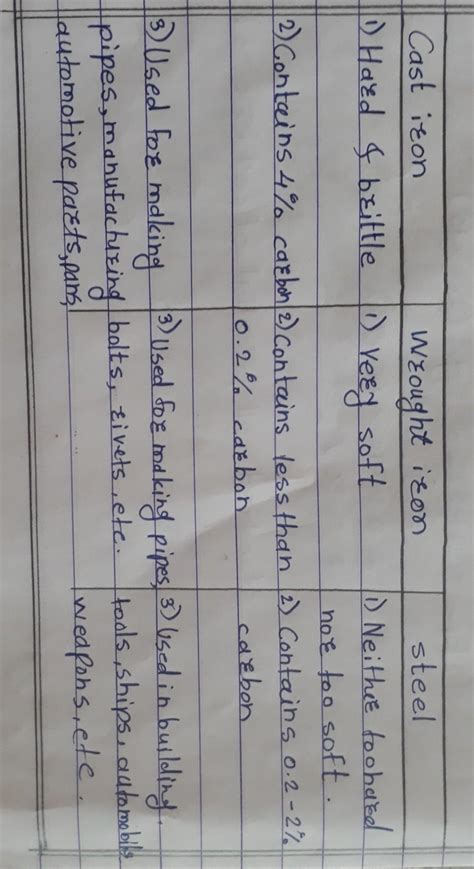 Cast iron
1) Hard & brittle
2) Contains 4% carbon
3) Used for making
pipes, manufacturing
automotive parts, pans,
Wrought iron
1) Very soft
2) Contains less than
0.2% carbon
3) Used for making pipes,
bolts, rivets, etc.
steel
1) Neithe too hard
nor too soft.
2) Contains 0.2-2%
carbon
3) Used in building,
tools, ships, automobils
weapons, etc.